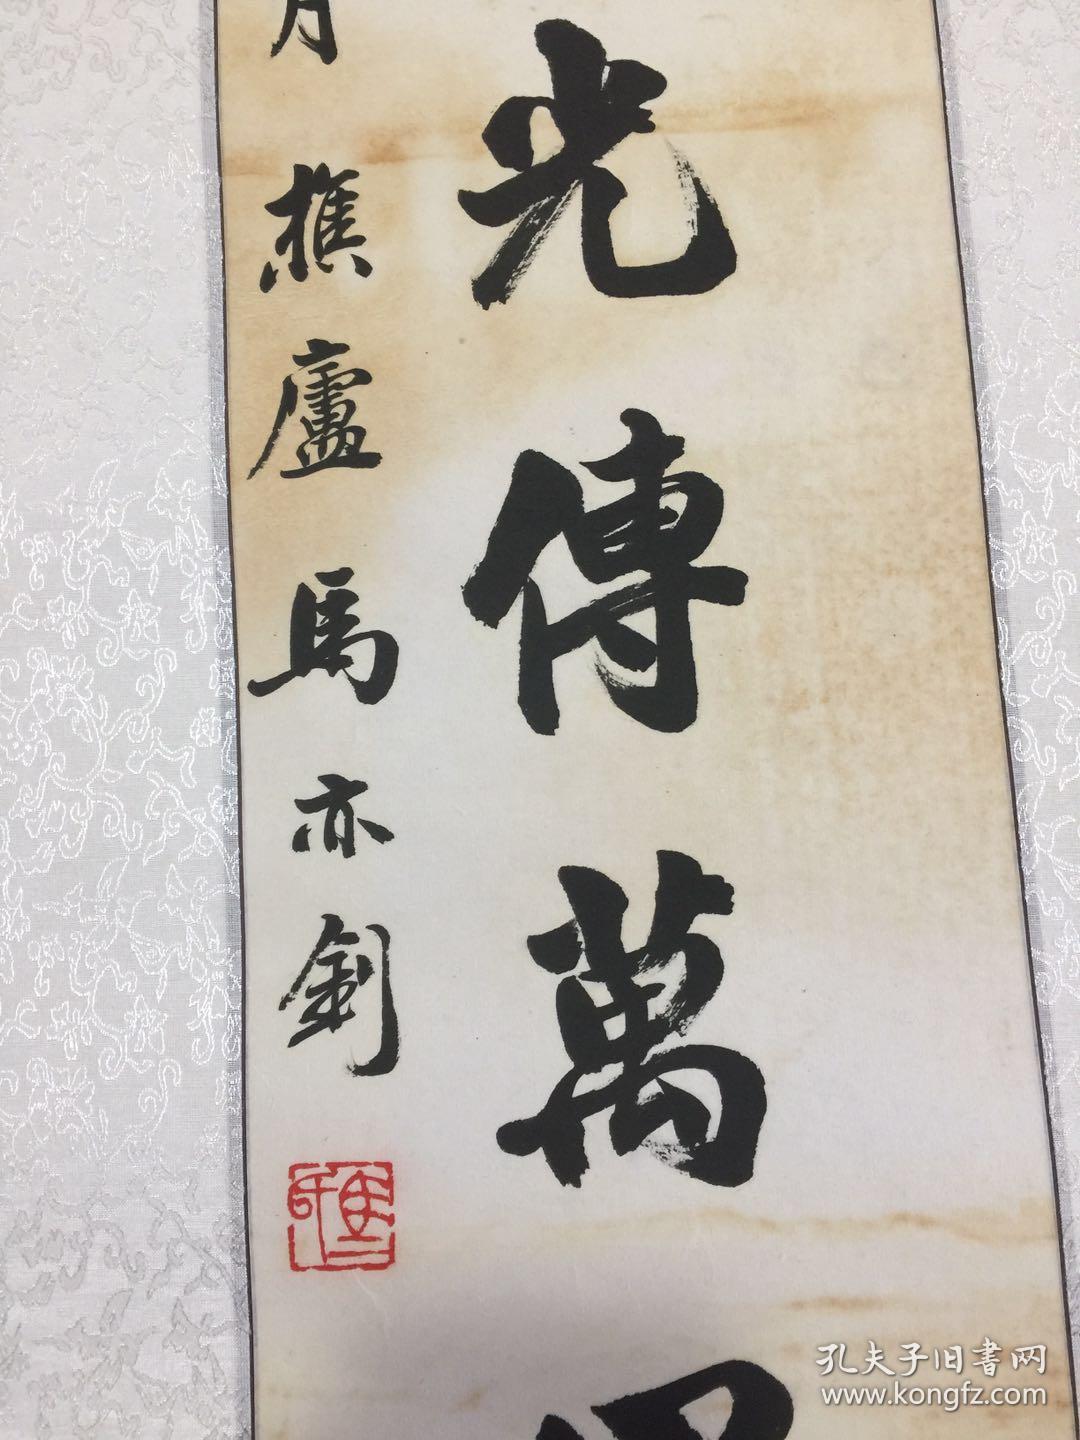 光傳萬
月樵廬馬亦釗
孔夫子旧書网
www.kongfz.com